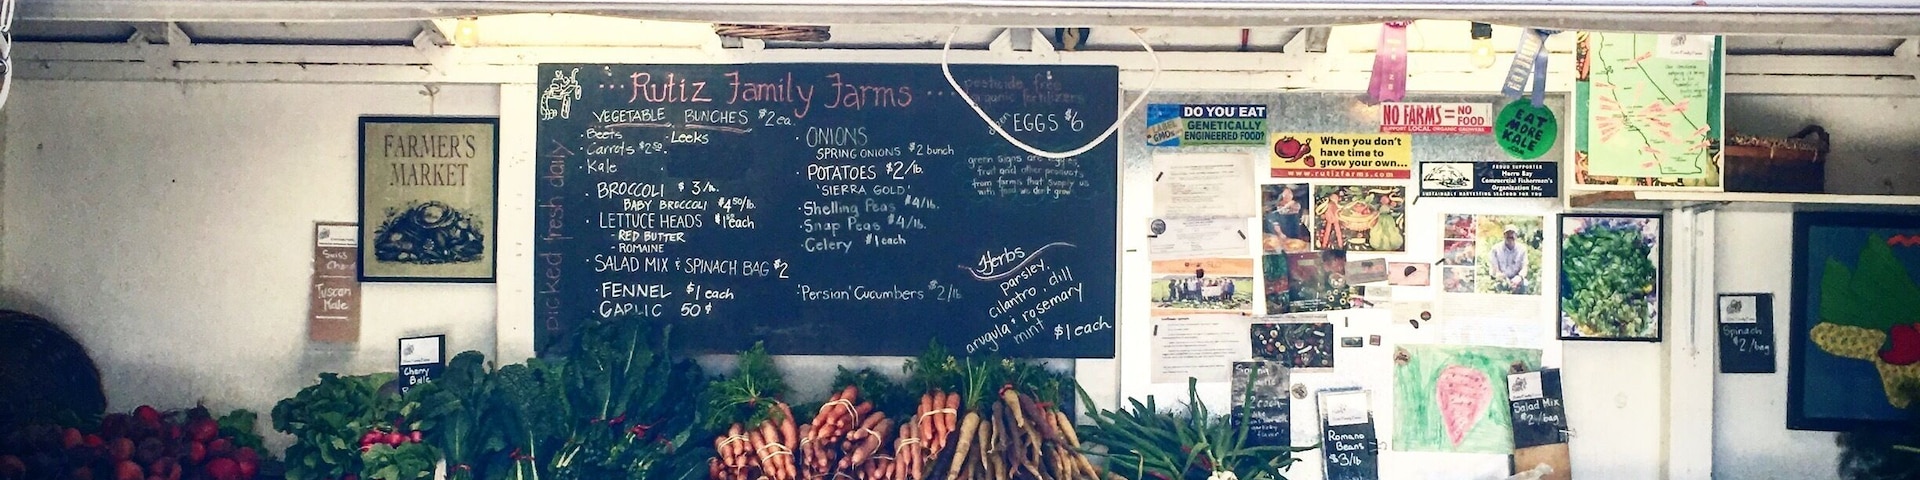 FARMER'S
MARKET
Swiss
Chard
Tuscan
Kale
Cherry
Belle
picked fresh daily
Rutiz Family Farms
VEGETABLE BUNCHES $2 ea.
· Beets
· Leeks
· Carrots $2.50
· Kale
· BROCCOLI $3/lb.
BABY BROCCOLI $4.50/lb.
· LETTUCE HEADS $1.50 each
- RED BUTTER
- ROMAINE
· SALAD MIX & SPINACH BAG $2
· FENNEL $1 each
· GARLIC 50¢
· ONIONS
SPRING ONIONS $2 bunch
· POTATOES $2/lb.
'SIERRA GOLD'
· Shelling Peas $4/lb.
· Snap Peas $4/lb.
· Celery $1 each
'Persian' Cucumbers $2/lb
pesticide free
organic fertilizers
EGGS $6
green signs are eggs,
fruit and other products
from farms that supply us
with food we don't grow
Herbs
parsley,
cilantro, dill
arugula & rosemary
mint $1 each
DO YOU EAT
GENETICALLY
ENGINEERED FOOD?
LABEL
GMOs
NO FARMS = NO FOOD
SUPPORT LOCAL ORGANIC GROWERS
EAT
MORE
KALE
.COM
When you don't
have time to
grow your own...
www.rutizfarms.com
PROUD SUPPORTER
Morro Bay
Commercial Fishermen's
Organization Inc.
SUSTAINABLY HARVESTING SEAFOOD FOR YOU
Romano
Beans
$3/lb
Salad Mix
$2/bag
Spinach
$2/bag